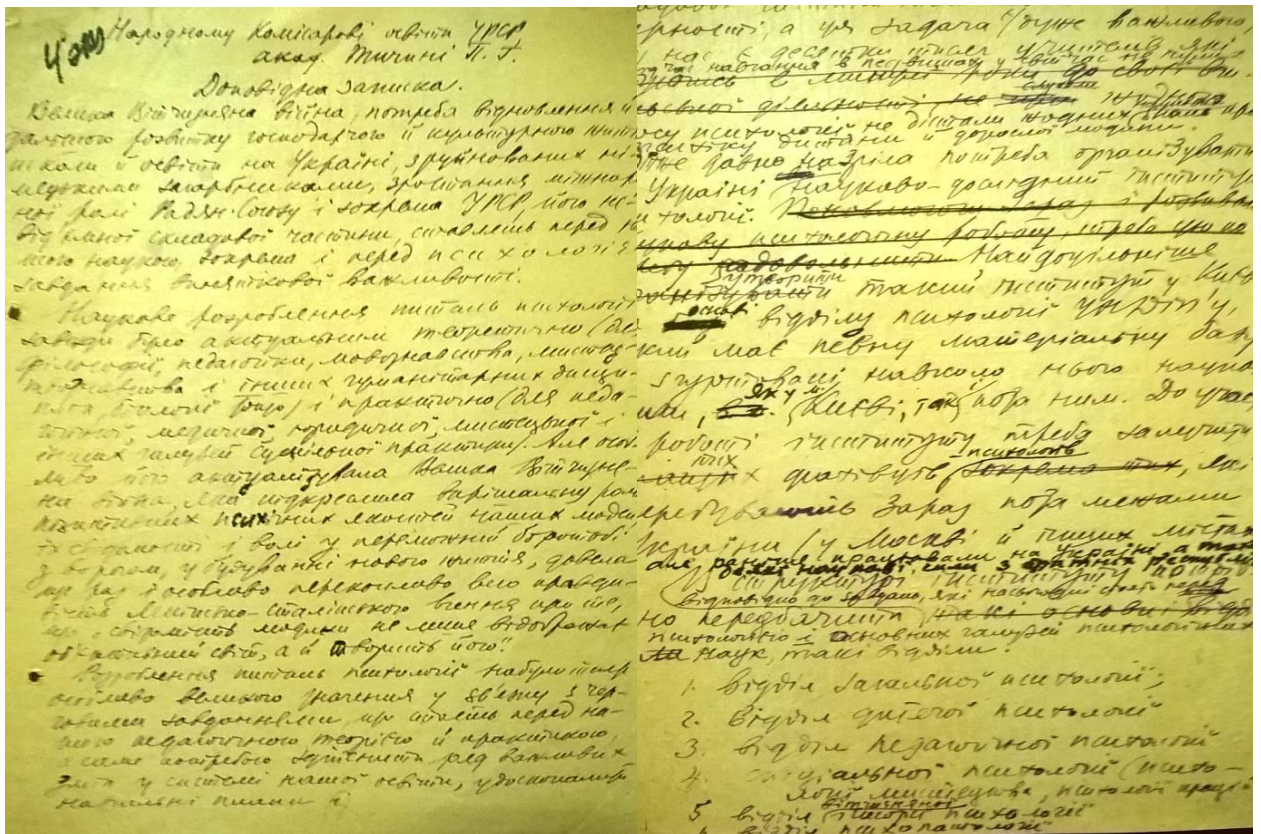 4 экз
Народному Комісарові освіти УРСР
акад. Тичині П. Г.
Доповідна записка.
Велика Вітчизняна війна, потреба відновлення й
дальшого розвитку господарчого й культурного життя
школи й освіти на Україні, зруйнованих ні-
мецькими загарбниками, зростання міжнар
ної ролі Радян. Союзу і зокрема УРСР, його не-
від'ємної складової частини, ставлять перед на
шою наукою, зокрема і перед психологією
завдання виняткової важливості.
Наукове розроблення питань психології
завжди було актуальним теоретично (для
філософії, педагогіки, мовознавства, мистец-
тва і інших гуманітарних дисци-
плін, біології тощо) і практично (для педа-
гогічної, медичної, юридичної, мистецької і
інших галузей суспільної практики). Але особ-
ливо його актуалізувала Велика Вітчизня-
на війна, яка підкреслила вирішальну роль
позитивних психічних якостей наших людей
їх свідомості і волі у переможній боротьбі
з ворогом, у будуванні нового життя, довела
ще раз і особливо переконливо всю правди-
вість Ленінсько-сталінського вчення про те,
що "свідомість людини не лише відображає
об'єктивний світ, а й творить його".
Розроблення питань психології набуло тепер
особливо великого значення у зв'язку з чер-
говими завданнями, що стоять перед на-
шою педагогічною теорією й практикою,
а саме потребою здійснити ряд важливих
змін у системі нашої освіти, удосконалити
навчальні плани і
а ця задача дуже важлива,
нас є десятки тисяч учителів, які
під час навчання в педвишах у свій час
в минулі роки до своєї
діяльності не
психології не дістали жодних знань про
психіку дитини й дорослої людини.
давно назріла потреба організувати
Україні науково-дослідний інститут
психології.
наукову психологічну роботу, треба цю
Найдоцільніше
утворити
такий інститут у Києві
основі відділу психології УНДІП'у,
який має певну матеріальну базу
згуртовані навколо нього наукові
як у м.
Києві, так і поза ним. До участі
роботі інституту треба залучити
тих
фахівців психологів, які
перебувають зараз поза межами
України (у Москві й інших містах
але раніше працювали на Україні, а також
наукові сили з братніх республік
структурі інституту
відповідно до завдань, які насьогодні стоять перед
но передбачити такі основні відді
психологією і основних галузей психологічних
наук, такі відділи:
1. Відділ загальної психології;
2. Відділ дитячої психології
3. Відділ педагогічної психології
4. спеціальної психології (психо-
логії мистецтва, психології праці
5 відділ вітчизняної історії психології
відділ психопатології